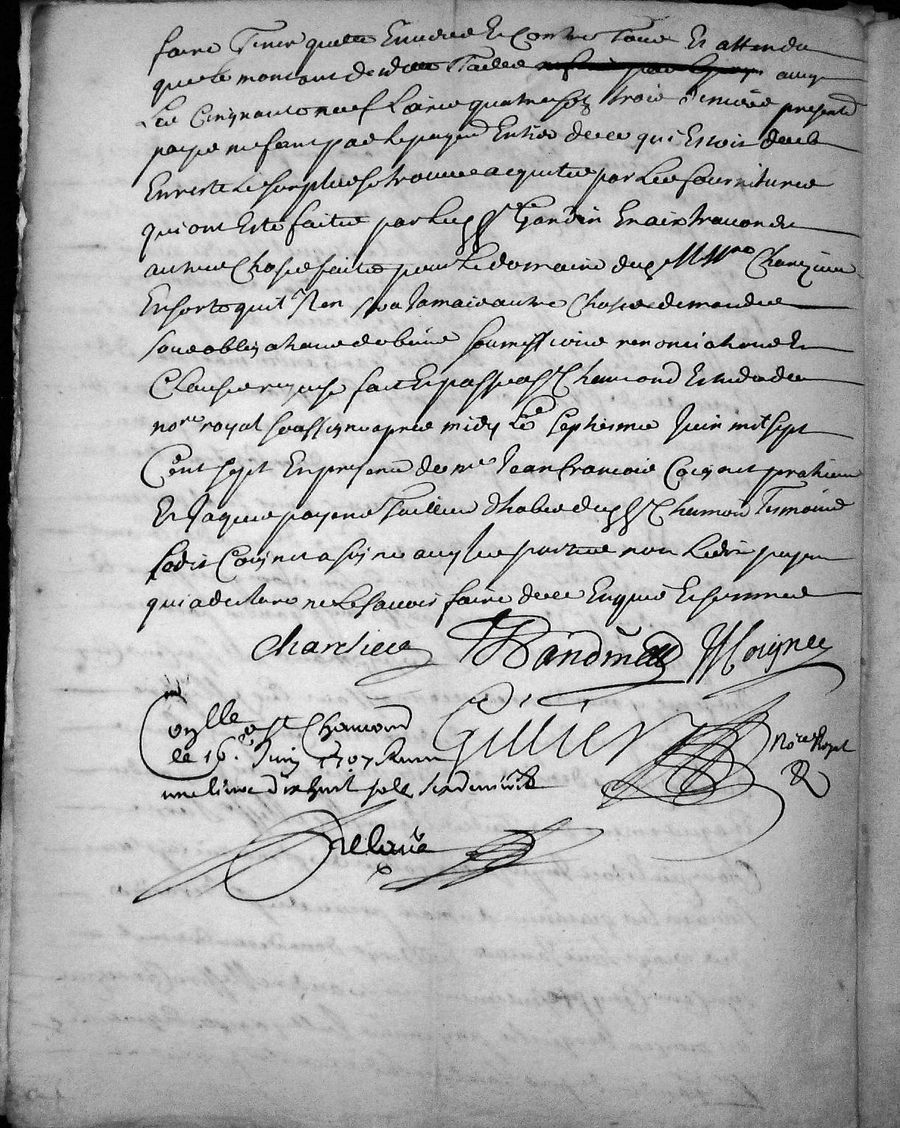 faire Tenir quitte Envers Et Contre Tous Et attendu
que le montant desd Tailles avec
Les Cinquante neuf Livres quatre sols trois deniers presentem
payes ne font pas Le payem Entier de ce qui Estoit deub
Enreste Le surplus se trouve acquitte par Les fournitures
qui ont Esté faites par Led Sr Gardin
autres Choses faites pour Le domaine dud
Ensorte quil nen sera Jamais autre Chose demandee
sous obligations de biens soumissions renonciations Et
Clauses requises fait Et passe a St Chamond Estude du
nore royal soussigne apres midy Le septiesme Juin mil sept
Cent sept En presence de me Jean francois Coignet praticien
Et Jaques payen Tailleur dhabits dud St Chamond Tesmoins
Ledit Coignet a signe avec Les parties non Ledit payen
qui a declare ne Le savoir faire de ce Enquis Et somme
Charliere JCoignet
Conlle a St Chamond Gillier Nore Royal
le 16e Juin 1707 Receu
une livre dix huit sols
Delarüe